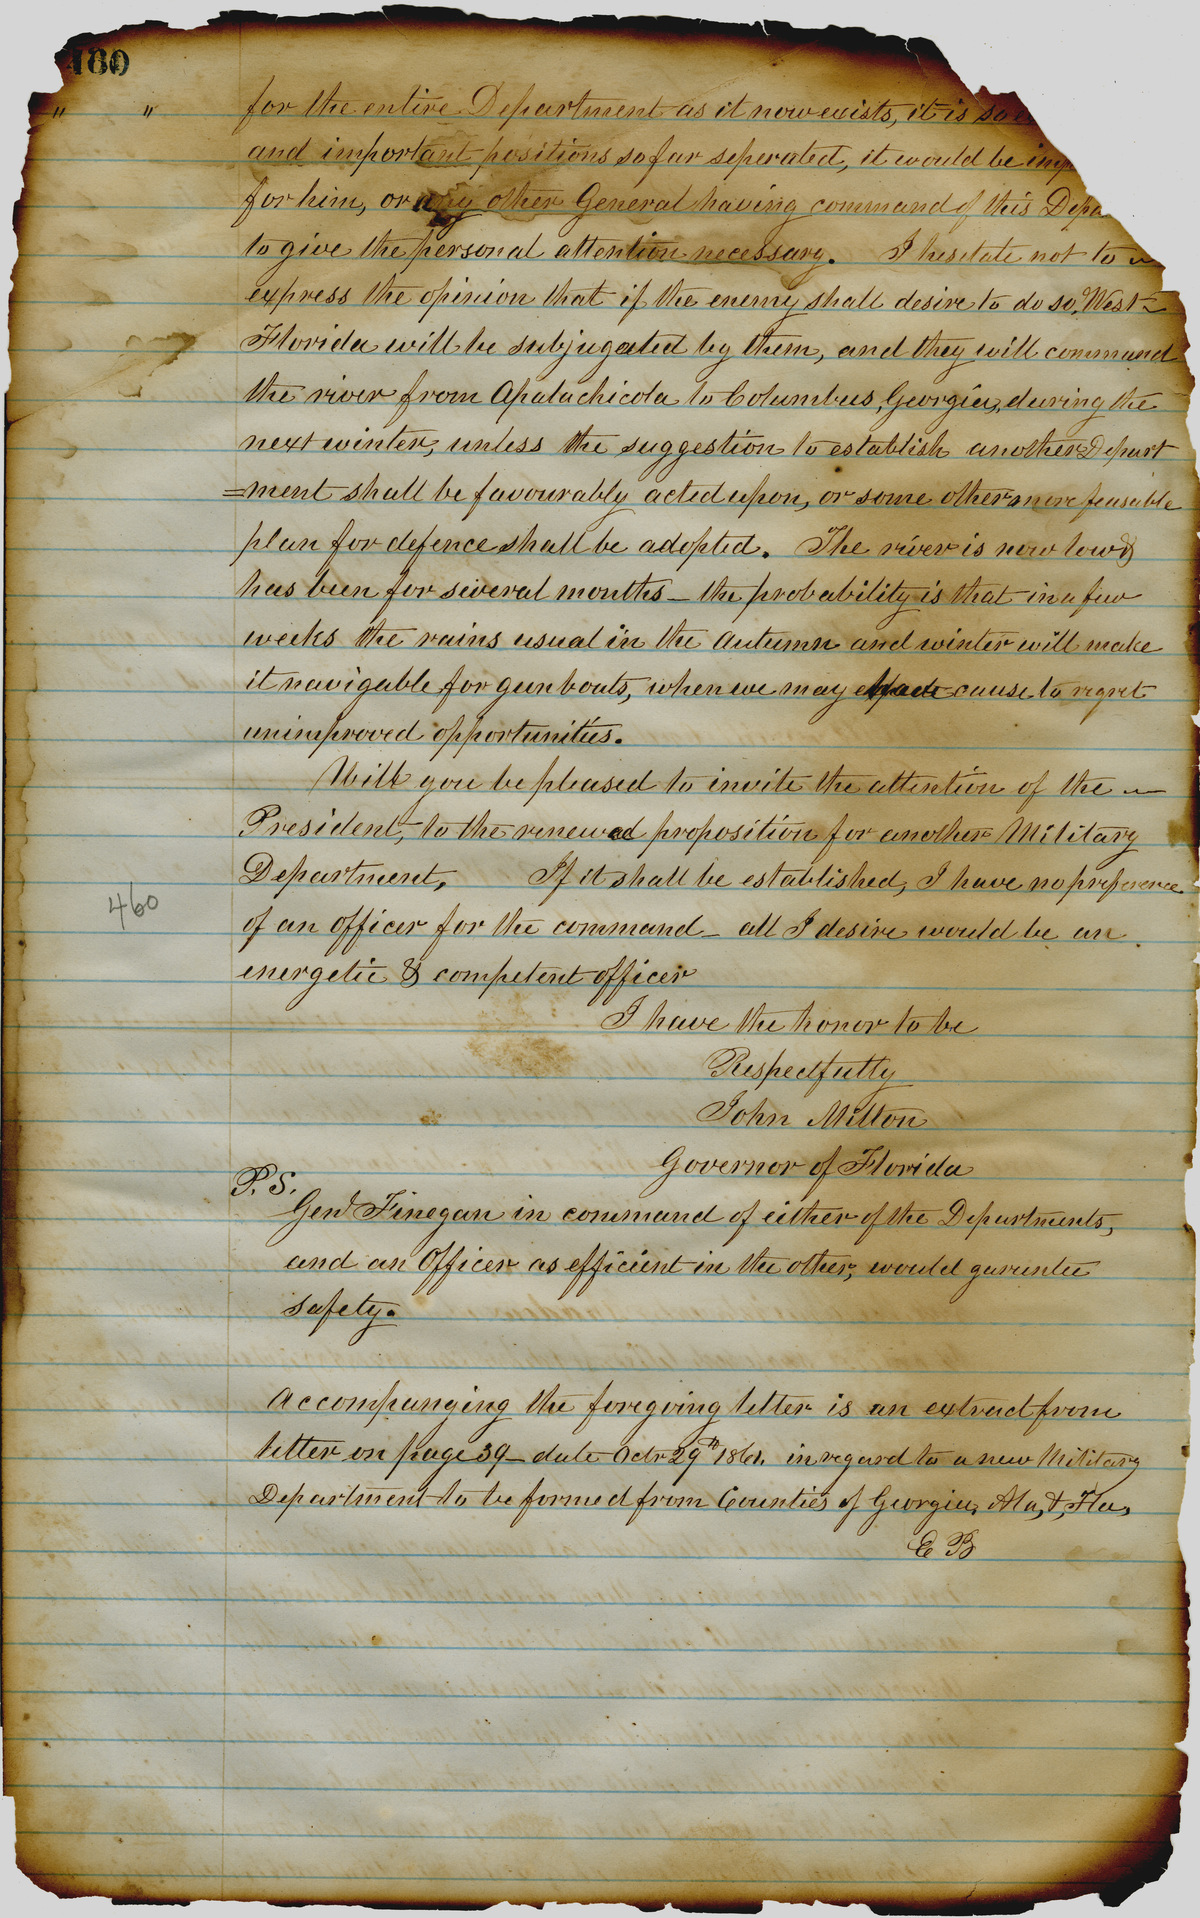 180
" " for the entire Department as it now exists, it is so
and important positions so far seperated, it would be
for him, or any other General having command of this
to give the personal attention necessary. I hesitate not to
express the opinion that if the enemy shall desire to do so, West
Florida will be subjugated by them, and they will command
the river from Apalachicola to Columbus, Georgia, during the
next winter, unless the suggestion to establish another Depart
=ment shall be favourably acted upon, or some other more feasable
plan for defence shall be adopted. The river is now low &
has been for several months – the probability is that in a few
weeks the rains usual in the Autumn and winter will make
it navigable for gun boats, when we may have cause to regret
unimproved opportunities.
Will you be pleased to invite the attention of the
President, to the renewed proposition for another Military
Department. If it shall be established, I have no preference
460
of an officer for the command – all I desire would be an
energetic & competent officer
I have the honor to be
Respectfully
John Milton
Governor of Florida
P.S.
Genl Finegan in command of either of the Departments,
and an Officer as efficient in the other, would garuntee
safety.
Accompanying the foregoing letter is an extract from
letter on page 39 – date Octr 29th 1861. in regard to a new Military
Department to be formed from Counties of Georgia, Ala, &, Fla,
E B